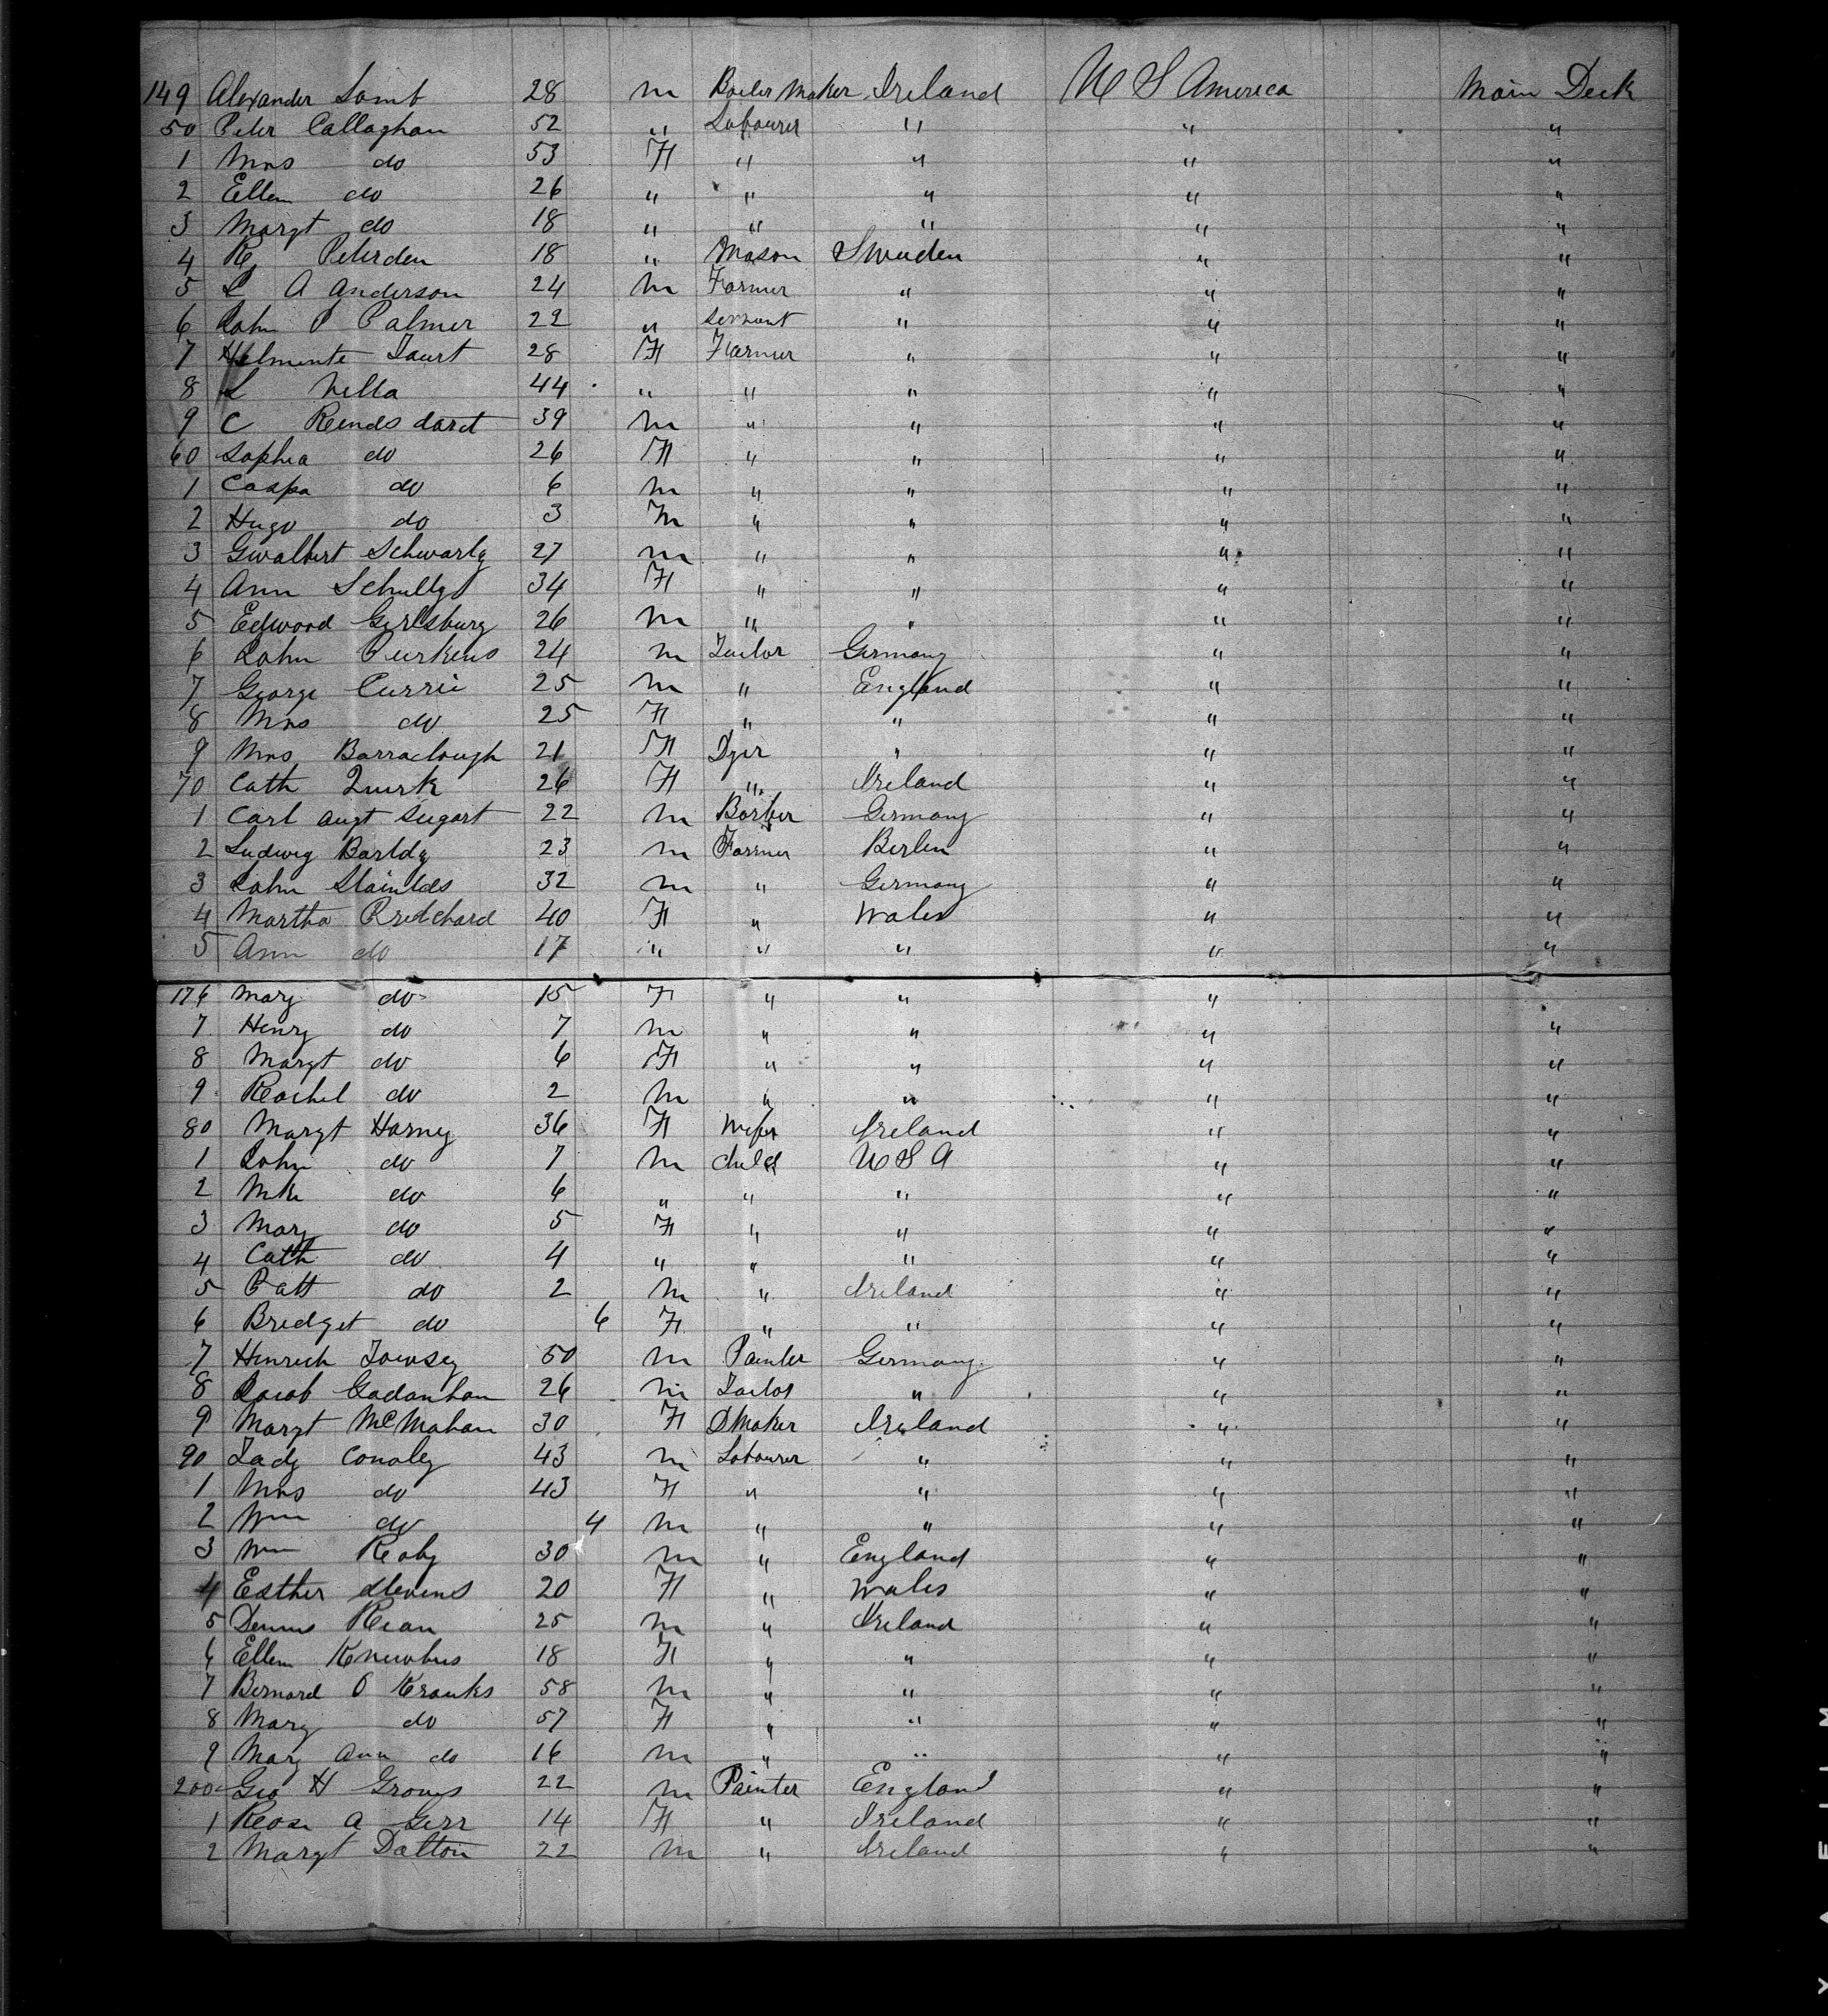 149 Alexander Lamb 28 m Boiler Maker Ireland U S America Main Deck
50 Peter Callaghan 52 " Labourer " " "
1 Mrs do 53 F " " " "
2 Ellen do 26 " " " " "
3 Margt do 18 " " " " "
4 R Peterden 18 " Mason Sweden " "
5 L A Anderson 24 m Farmer " " "
6 John P Palmer 22 " Servant " " "
7 Helmente Taurt 28 F Farmer " " "
8 L Nella 44 " " " " "
9 C Rendsdard 39 m " " " "
60 Sophia do 26 F " " " "
1 Caspa do 6 m " " " "
2 Hugo do 3 m " " " "
3 Gwalbert Schwartz 27 m " " " "
4 Ann Schultz 34 F " " " "
5 Edward Gerlsburg 26 m " " " "
6 John Puerkens 24 m Tailor Germany " "
7 George Currie 25 m " England " "
8 Mrs do 25 F " " " "
9 Mrs Barraclough 21 F Dyer " " "
70 Cath Quirk 26 F " Ireland " "
1 Carl Augt Seigart 22 m Barber Germany " "
2 Ludwig Bartdz 23 m Farmer Berlin " "
3 John 32 m " Germany " "
4 Martha Pritchard 40 F " Wales " "
5 Ann do 17 " " " " "
176 Mary do 15 F " " "
7 Henry do 7 m " " " "
8 Margt do 6 F " " " "
9 Rachel do 2 m " " " "
80 Margt Harney 36 F Wife Ireland " "
1 John do 7 m Child U S A " "
2 Mke do 6 " " " " "
3 Mary do 5 F " " " "
4 Cath do 4 " " " " "
5 Patt do 2 m " Ireland " "
6 Bridget do 6 F " " " "
7 Henrich Towsey 50 m Painter Germany " "
8 Jacob Gadanhan 26 m Tailor " " "
9 Margt McMahan 30 F DMaker Ireland " "
90 Tady Conoley 43 m Labourer " " "
1 Mrs do 43 F " " " "
2 Wm do 4 m " " " "
3 Wm Roby 30 m " England " "
4 Esther Stevens 20 F " Wales " "
5 Dennis Rean 25 m " Ireland " "
6 Ellen 18 F " " " "
7 Bernard O Kranks 58 m " " " "
8 Mary do 57 F " " " "
9 Mary Ann do 16 m " " " "
200 Geo H Groves 22 m Painter England " "
1 Rose A Gerr 14 F " Ireland " "
2 Margt Dalton 22 m " Ireland " "